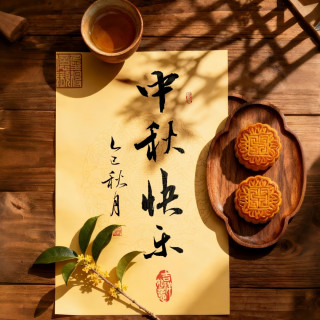 中秋快乐
乙巳秋月